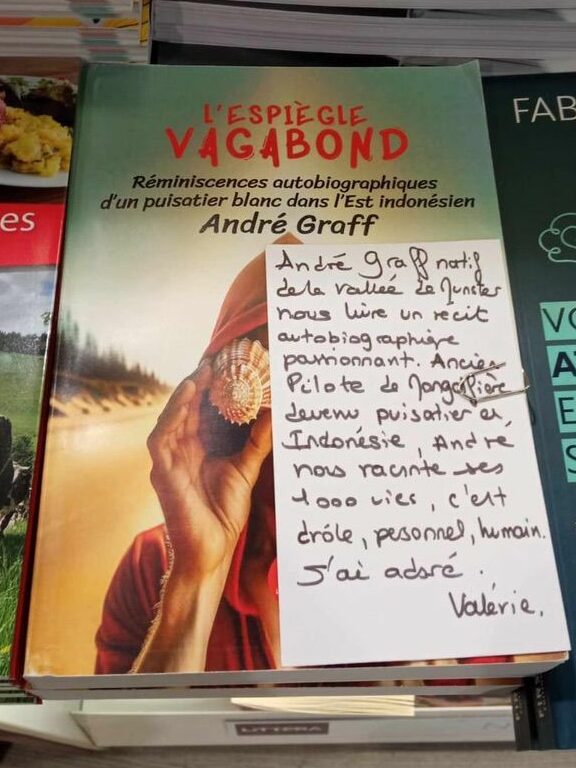 L'ESPIÈGLE
VAGABOND
Réminiscences autobiographiques
d'un puisatier blanc dans l'Est indonésien
André Graff
André Graff natif
de la vallée de Munster
nous livre un récit
autobiographique
passionnant. Ancien
Pilote de Mongolfière
devenu puisatier en
Indonésie, André
nous raconte ses
1000 vies, c'est
drôle, pesonnel, humain.
J'ai adoré.
Valérie.
es
FAB
VO
A
E
S
LITTERA